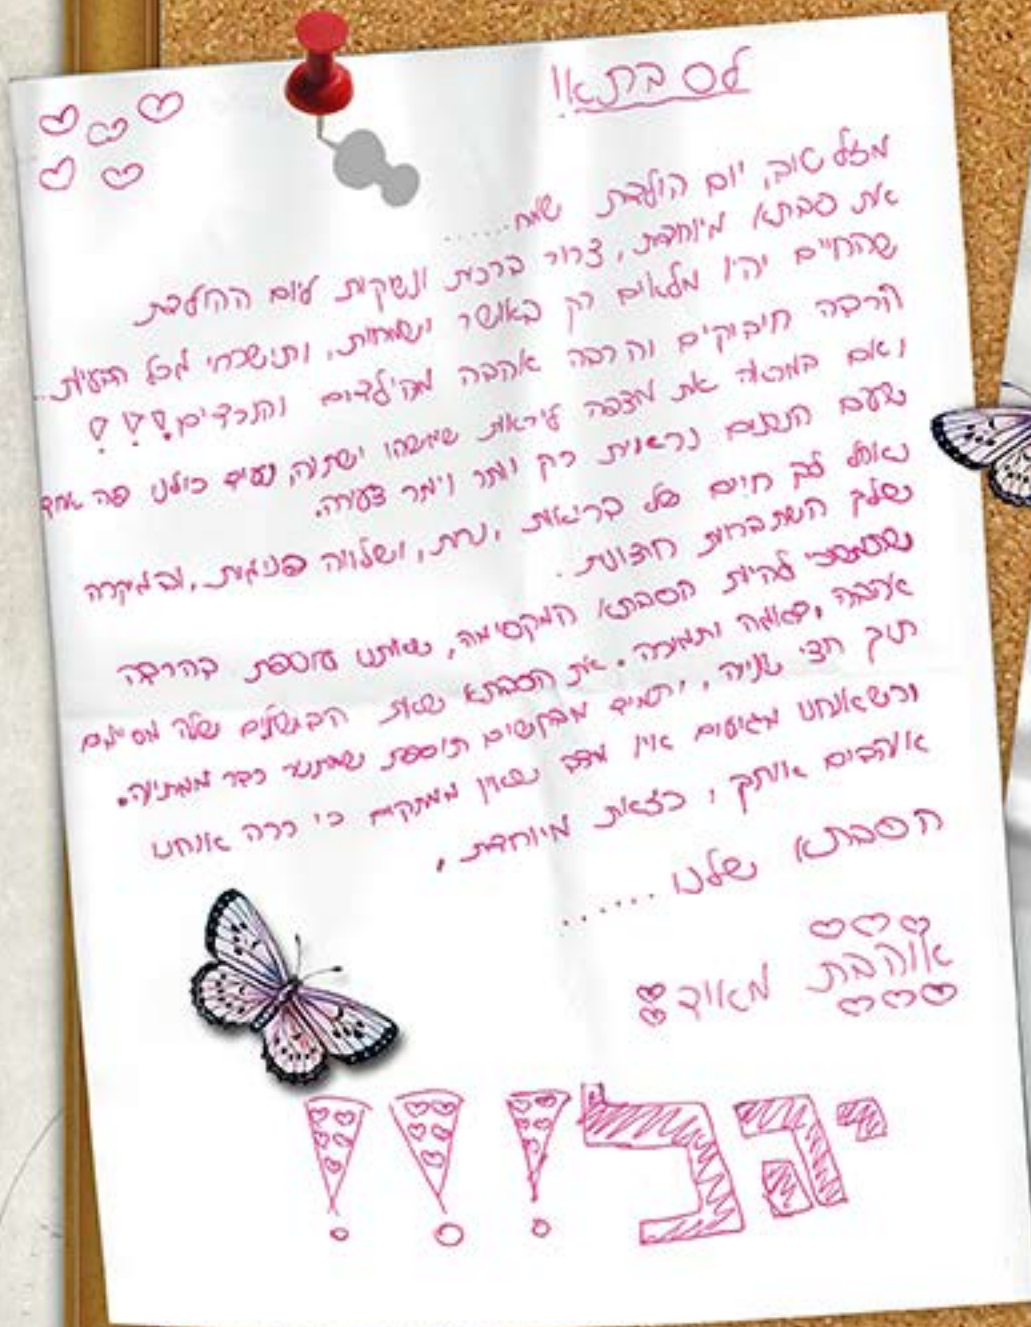 לסבתא!
מזל טוב, יום הולדת שמח......
את סבתא מיוחדת, צרור ברכות ונשיקות ליום ההולדת
שהחיים יהיו מלאים רק באושר ושמחות, ותשכחי מכל הבעיות..
הרבה חיבוקים והרבה אהבה מהילדים והנכדים!!!
ואם במראה את מצפה לראות שמשהו ישתנה, נעים כולנו פה אחד
שעם השנים נראית רק יותר ויותר צעירה.
נאחל לך חיים של בריאות, נחת, ושלווה פנימית,
של השתברות חצונות.
שתמשכי להיות הסבתא המקסימה, שאותנו עוטפת בהרבה
אהבה, ותמיכה. את הסבתא שאת הבשולים שלה מסיימים
תוך חצי שנייה, ותמיד מבקשים תוספת כבר
וכשאנחנו מגיעים אין מצב שאין ממתקים כי ככה אנחנו
אוהבים אותך, כזאת מיוחדת,
הסבתא שלנו......
אוהבת מאוד
יהלי!!!